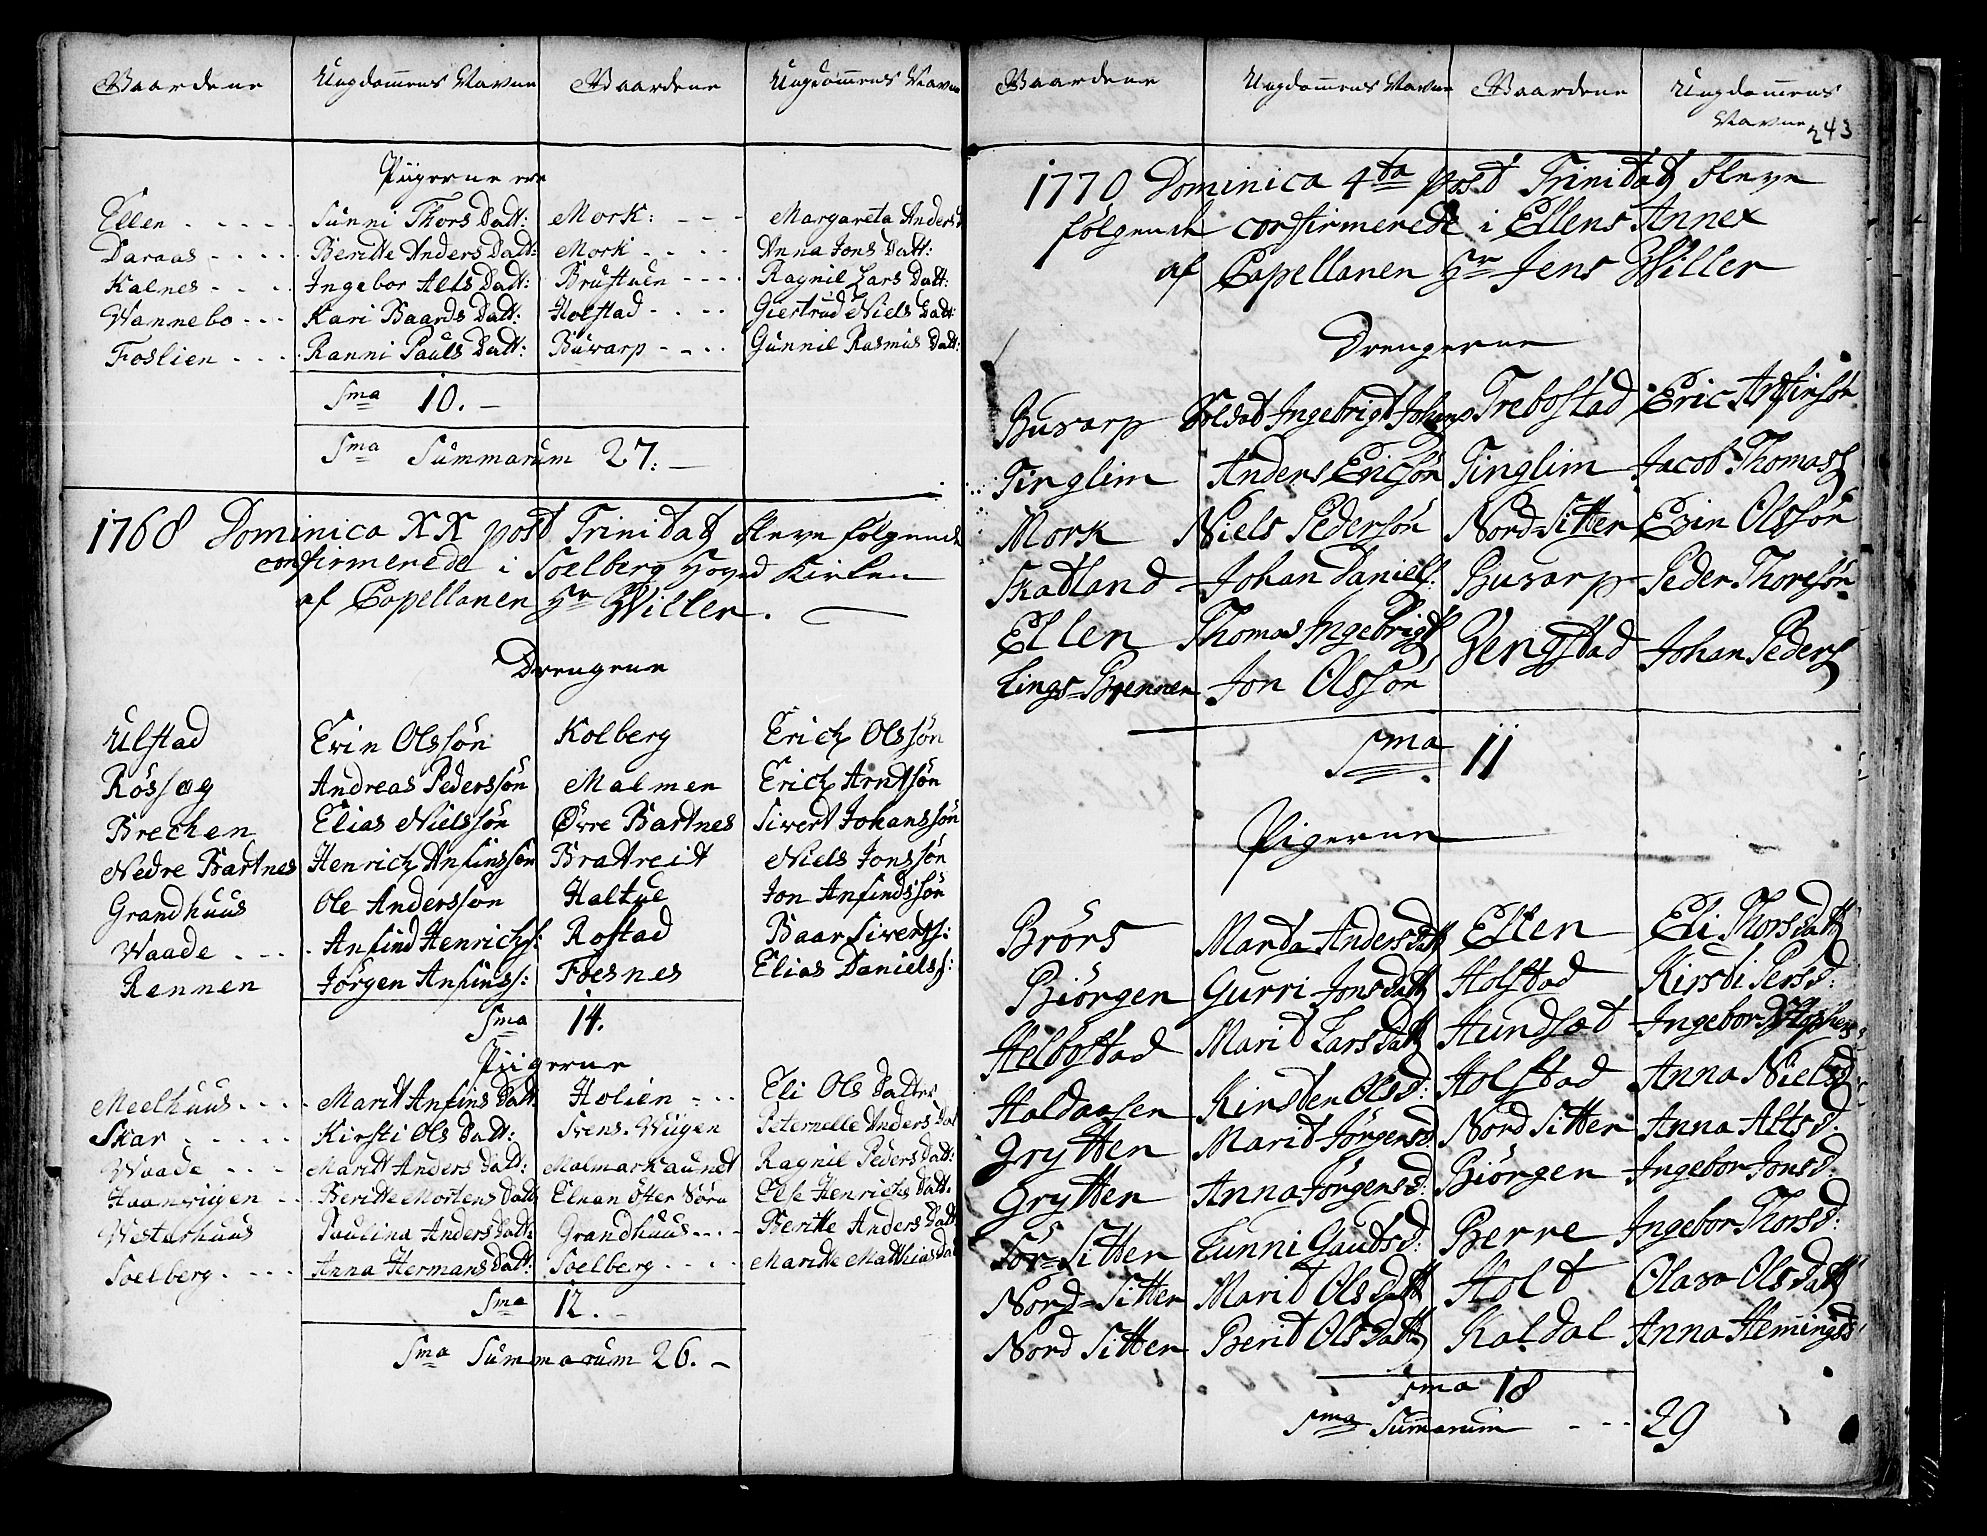 Gaardene Ungdommens Navne Gaardene Ungdommens Navne
Piigerne ere
Ellen - - - - - Sunni Thors Datt: Mork: - - - Margareta Anders
Daraas - - - - Beritte Anders Datt: Mork - - - - Anna Jons Datt:
Kalnes - - - Ingebor Alts Datt: Brustuen - - - - Ragnil Lars Datt:
Wannebo - - - Kari Baards Datt: Holstad - - - - Giertrud Niels Datt
Foslien - - - - Ranni Pauls Datt: Buvarp - - - - Gunnil Rasmus Datt:
Sma 10. -
Sma Summarum 27. -
1768 Dominica XX post Trinitat bleve følgende
confirmerede i Soelberg Hoved Kirken
af Capellanen Hr Willer.
Drengene
Ulstad Evin Olssön Kolberg Erich Olssön
Rössæg Andreas Pederssön Malmen Erich Arntsön
Brechen Elias Nielssön Øvre Bartnes Sivert Johanssön
Nedre Bartnes Henrich Anfinssön Bratreit Niels Jonssön
Grandhuus Ole Anderssön Haltue Jon Anfindssön
Waade - - - Anfind Henrichs: Rostad Baar Siverts:
Rennen Jörgen Anfinss: Foesnes Elias Danielss:
Sma 14.
Piigerne
Meelhuus - - - - Marit Anfins Datt: Holien - - - Eli Ols Datter
Skar - - - - - Kirsti Ols Datt: Svens-Wiigen Peternelle Anders Dat
Waade - - - Marit Anders Datt: Malmarkaunet Ragnil Peders Datt:
Haanviigen - - Beritte Mortens Datt Elnan Øfter Söra Else Henrichs Datt.
Westerhuus Paulina Anders Datt: Grandhuus - - - Beritte Anders Datt
Soelberg - - - - Anna Hermans Datt: Soelberg - - - - Maritte Matthias Dat
Sma 12. -
Sma Summarum 26. -
Gaardene Ungdommens Navne Gaardene Ungdommens
Navne 243
1770 Dominica 4ta post Trinitat bleve
følgende confirmerede i Ellens Annex
af Capellanen Hr Jens Willer
Drengerne
Buvarp Soldat Ingebrigt Johans Trebostad Eric Arfinsön
Tinglim Anders Ericsön Tinglim Jacob Thomass
Mork Niels Pedersön Nord-Sitter Evin Olssön
Skatland - Johan Daniels: Buvarp - Peder Thoresön
Ellen Thomas Ingebrigt Vengstad Johan Peders
Lings-Brennen Jon Olssön
Sma 11
Pigerne
Brörs Marta Anders Datt Ellen Eli Thors Datt
Biörgen Gurri Jons Datt Holstad Kirsti Persd:
Helbostad Marit Lars Datt Hundsæt Ingebor
Haldaasen Kirsten Olsd: Holstad Anna Nielsd
Grytten Marit Jörgensd: Nord Sitter Anna Altsd:
Grytten Anna Jörgensd: Biörgen Ingebor Jonsd:
Sör-Sitter Lunni Gautsd: Berre Ingebor Thorsd:
Nord-Sitter Marit Ols Datt Holt Olava Ols Datt
Nord Sitter Berit Ols Datt Kaldal Anna Hemingsd
Sma 18
Sma Sumarum - - - 29